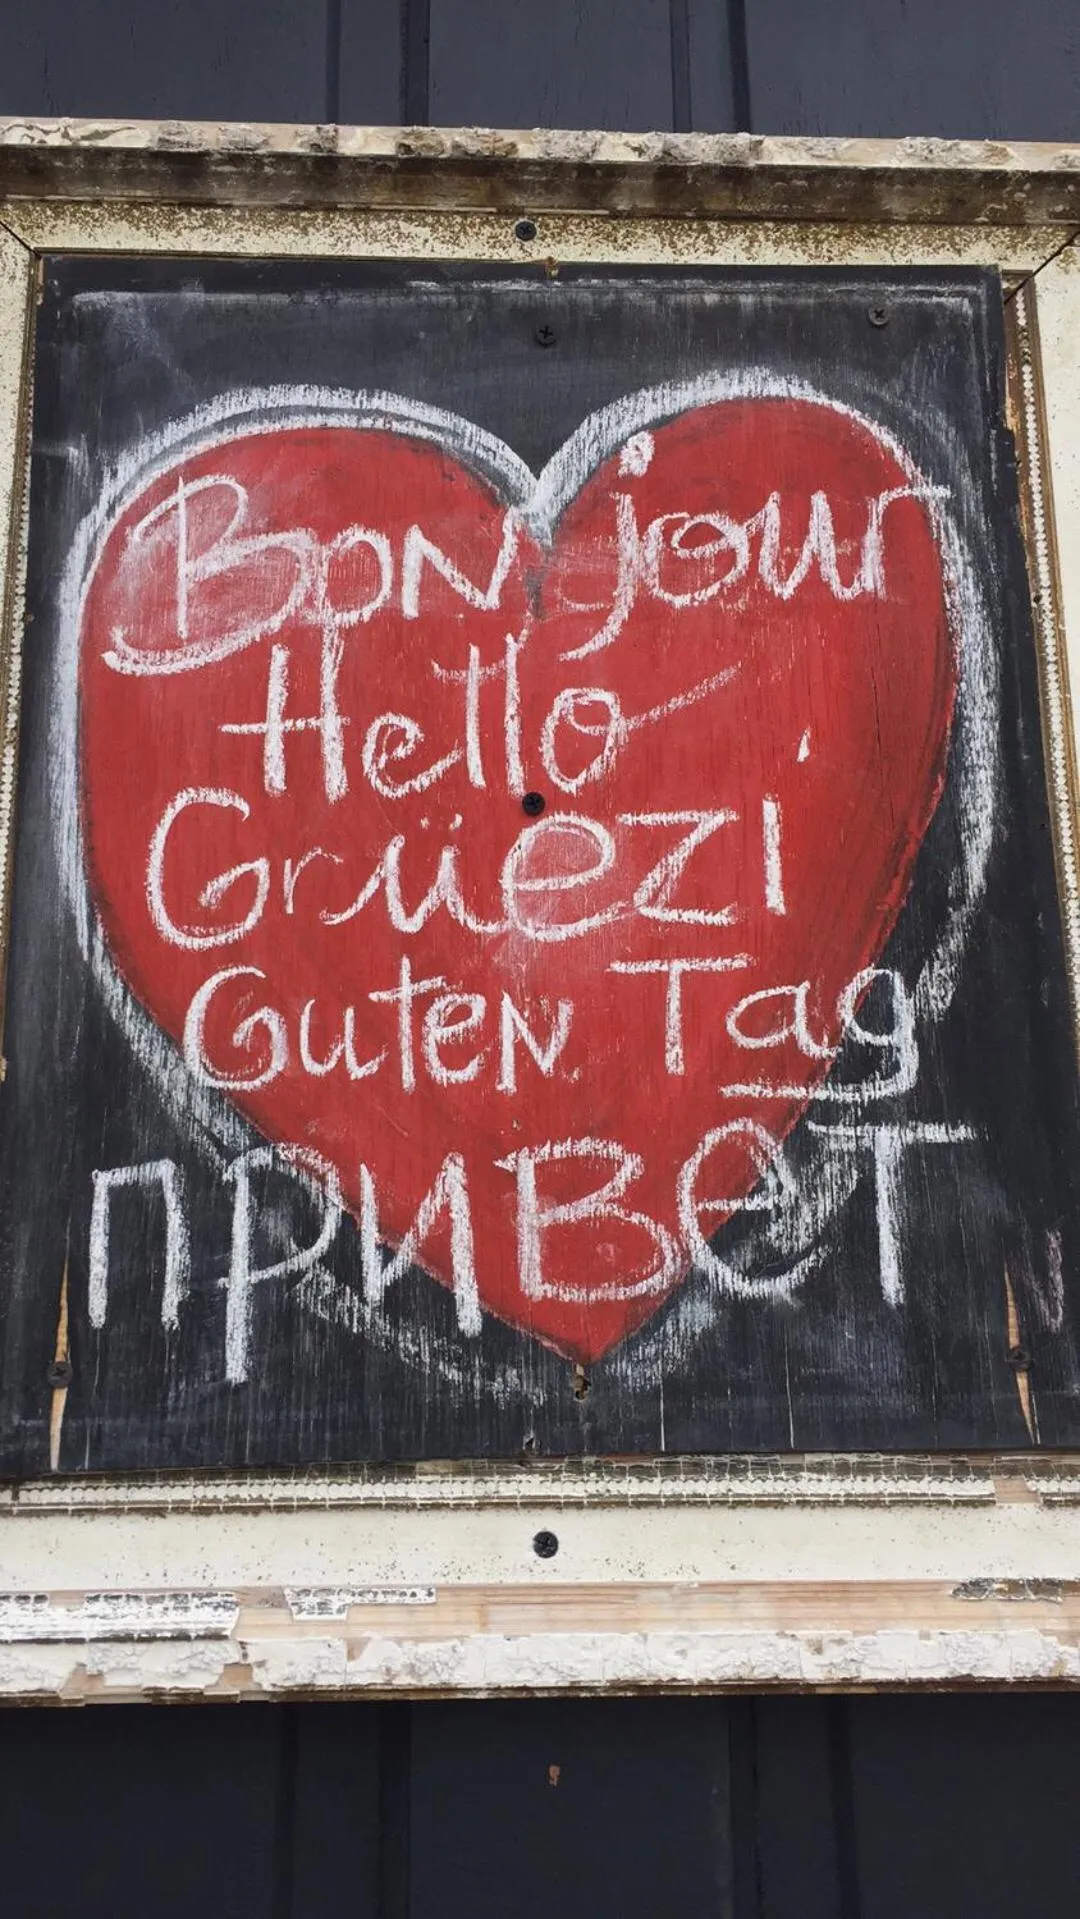 Bonjour
Hello
Grüezi
Guten Tag
привет